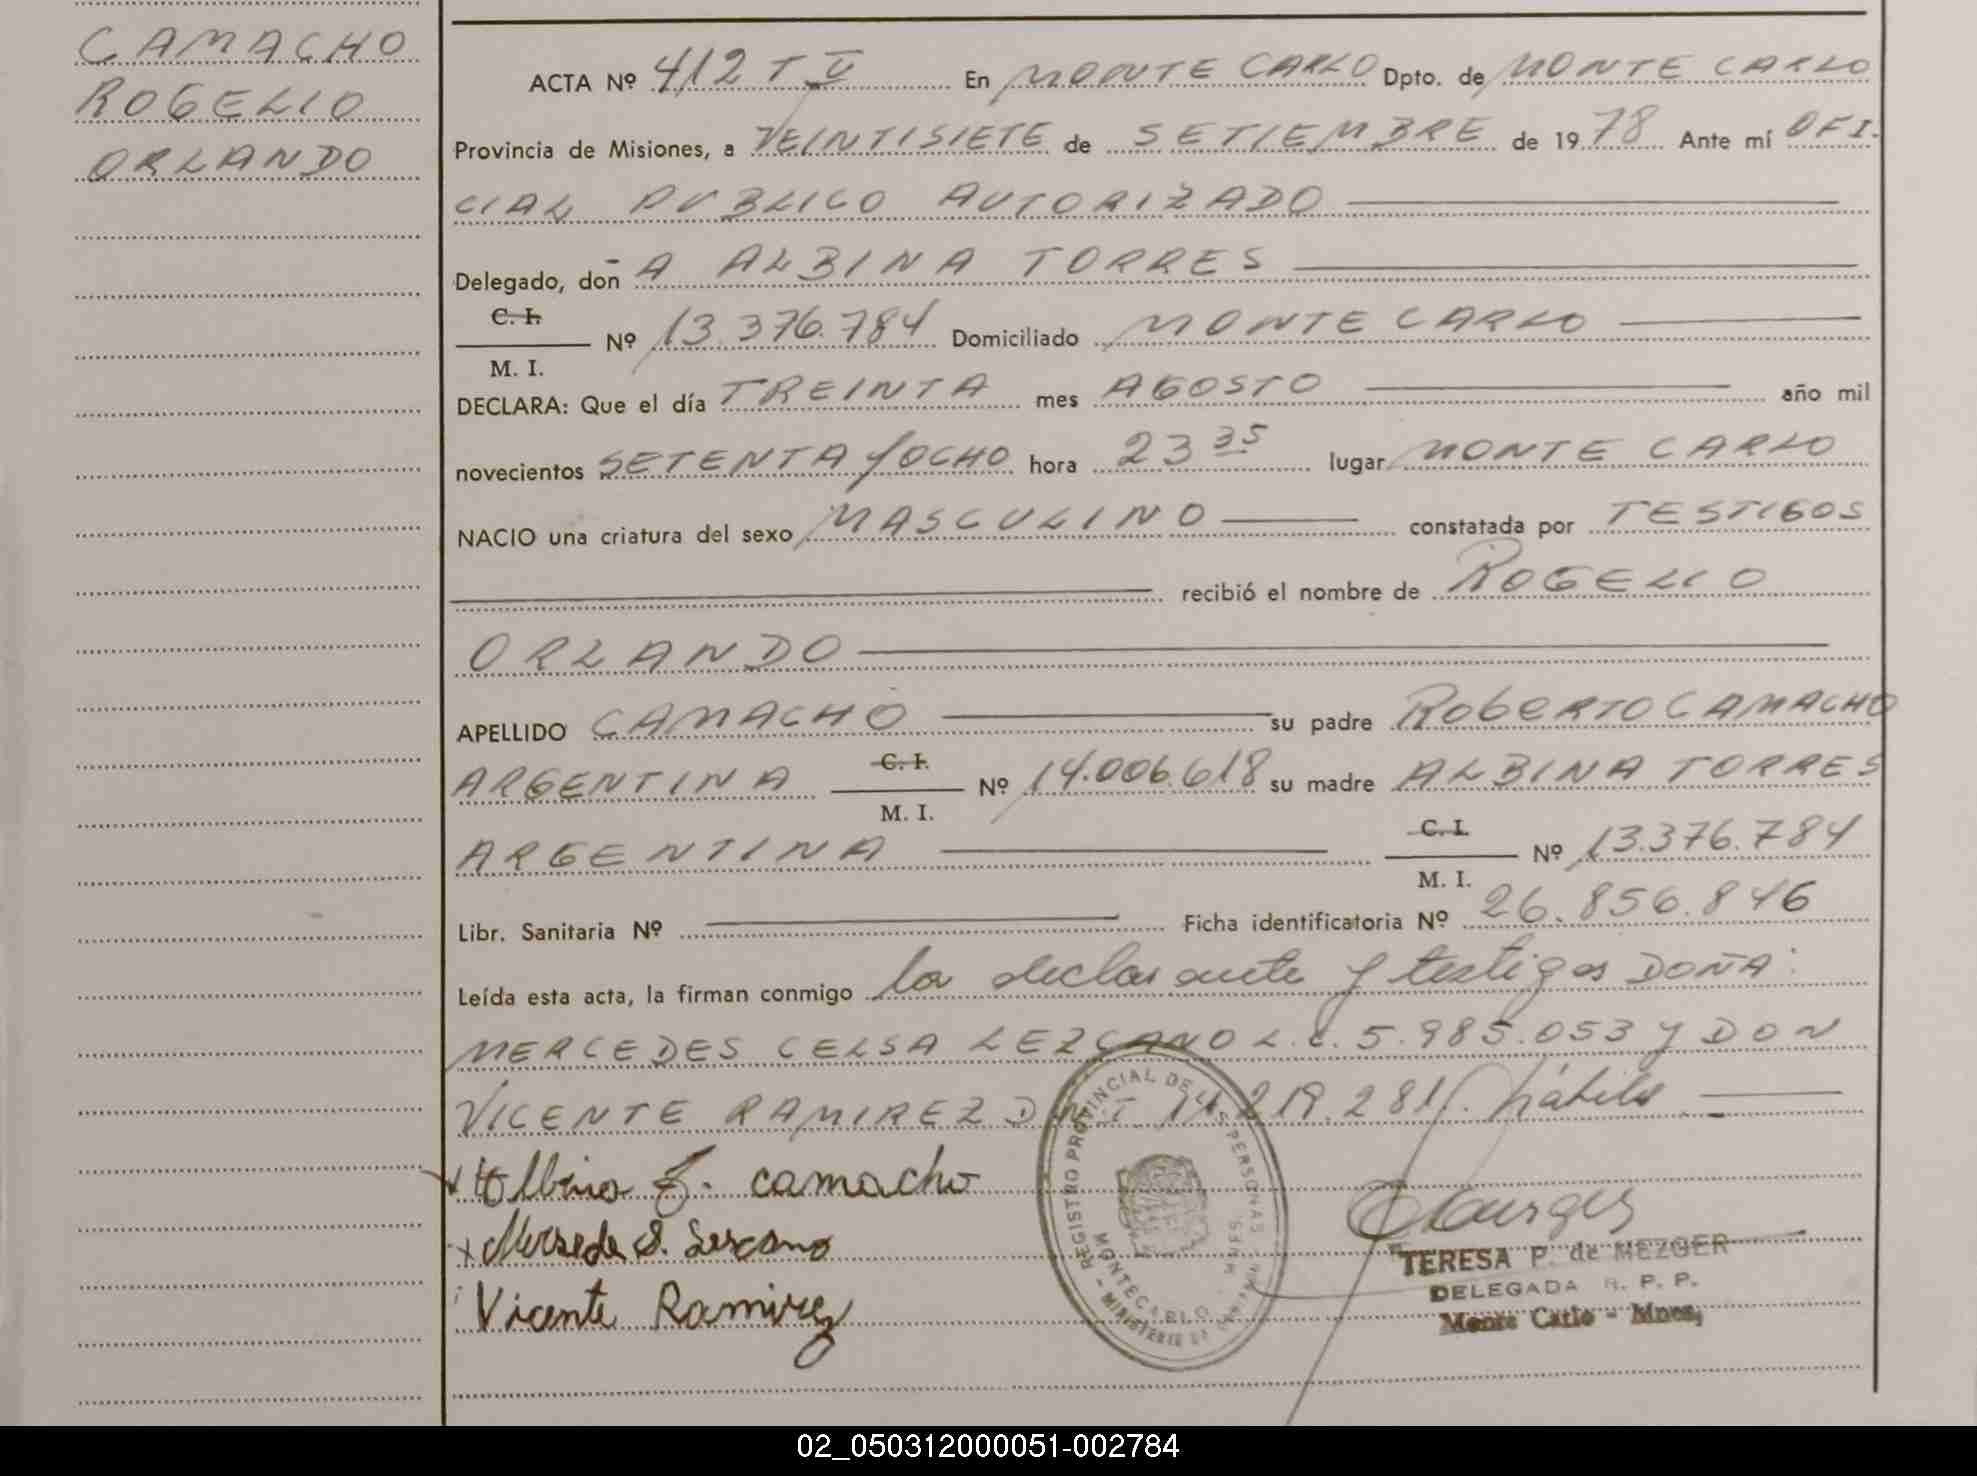 CAMACHO
ROGELIO
ORLANDO
ACTA Nº 412 T V En MONTE CARLO Dpto. de MONTE CARLO
Provincia de Misiones, a VEINTISIETE de SETIEMBRE de 1978 Ante mí OFI.
CIAL PUBLICO AUTORIZADO
Delegado, don A ALBINA TORRES
C. I.
M. I. Nº 13.376.784 Domiciliado MONTE CARLO
DECLARA: Que el día TREINTA mes AGOSTO año mil
novecientos SETENTA y OCHO hora 23 35 lugar MONTE CARLO
NACIO una criatura del sexo MASCULINO constatada por TESTIGOS
recibió el nombre de ROGELIO
ORLANDO
APELLIDO CAMACHO su padre ROBERTO CAMACHO
ARGENTINA C. I. M. I. Nº 14.006.618 su madre ALBINA TORRES
ARGENTINA C. I. M. I. Nº 13.376.784
Libr. Sanitaria Nº Ficha identificatoria Nº 26.856.846
Leída esta acta, la firman conmigo la declarante y testigos DOÑA:
MERCEDES CELSA LEZCANO L.C. 5.985.053 y DON
VICENTE RAMIREZ D.N.I. 14.219.281. hábiles
camacho
Vicente Ramirez
REGISTRO PROVINCIAL DE LAS PERSONAS
MONTECARLO - MNES.
TERESA P. de MEZGER
DELEGADA R. P. P.
Monte Carlo - Mnes,
02_050312000051-002784